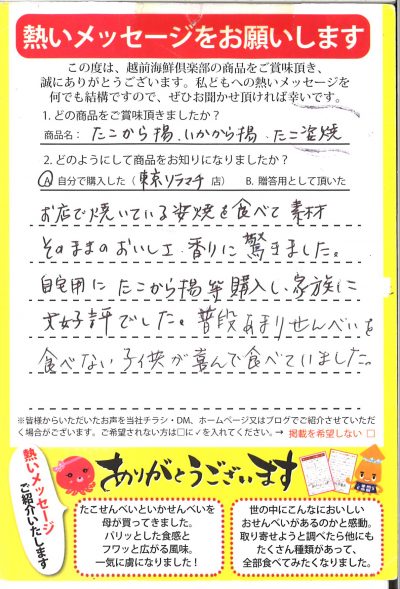 熱いメッセージをお願いします
この度は、越前海鮮倶楽部の商品をご賞味頂き、
誠にありがとうございます。私どもへの熱いメッセージを
何でも結構ですので、ぜひお聞かせ頂ければ幸いです。
1. どの商品をご賞味頂きましたか?
商品名: たこから揚、いかから揚、たこ姿焼
2. どのようにして商品をお知りになりましたか?
A 自分で購入した(東京ソラマチ店) B. 贈答用として頂いた
お店で焼いている姿焼を食べて 素材
そのままのおいしさ、香りに驚きました。
自宅用に たこから揚等購入し、家族に
大好評でした。普段あまりせんべいを
食べない子供が喜んで食べていました。
※皆様からいただいたお声を当社チラシ・DM、ホームページ又はブログでご紹介させていただ
く場合がございます。ご希望されない方は□に✓を入れてください。→ 掲載を希望しない □
熱いメッセージ
ご紹介いたします
ありがとうございます
たこせんべいといかせんべいを
母が買ってきました。
パリッとした食感と
フワッと広がる風味。
一気に虜になりました!
世の中にこんなにおいしい
おせんべいがあるのかと感動。
取り寄せようと調べたら他にも
たくさん種類があって、
全部食べてみたくなりました。